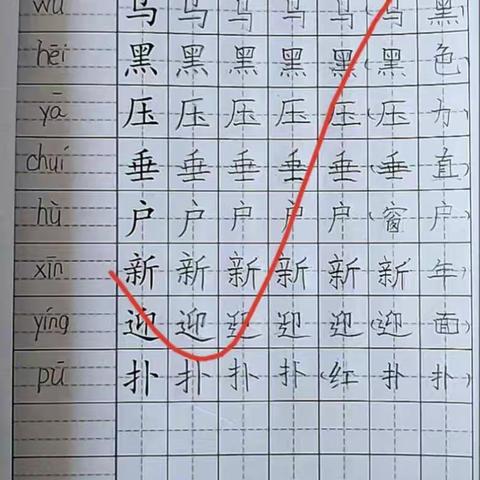 wū 乌 乌 乌 乌 乌 (乌 黑)
hēi 黑 黑 黑 黑 黑 (黑 色
yā 压 压 压 压 压 (压 力)
chuí 垂 垂 垂 垂 垂 (垂 直)
hù 户 户 户 户 户 (窗 户)
xīn 新 新 新 新 新 新 年
yíng 迎 迎 迎 迎 迎 (迎 面)
pū 扑 扑 扑 扑 (红 扑 扑)